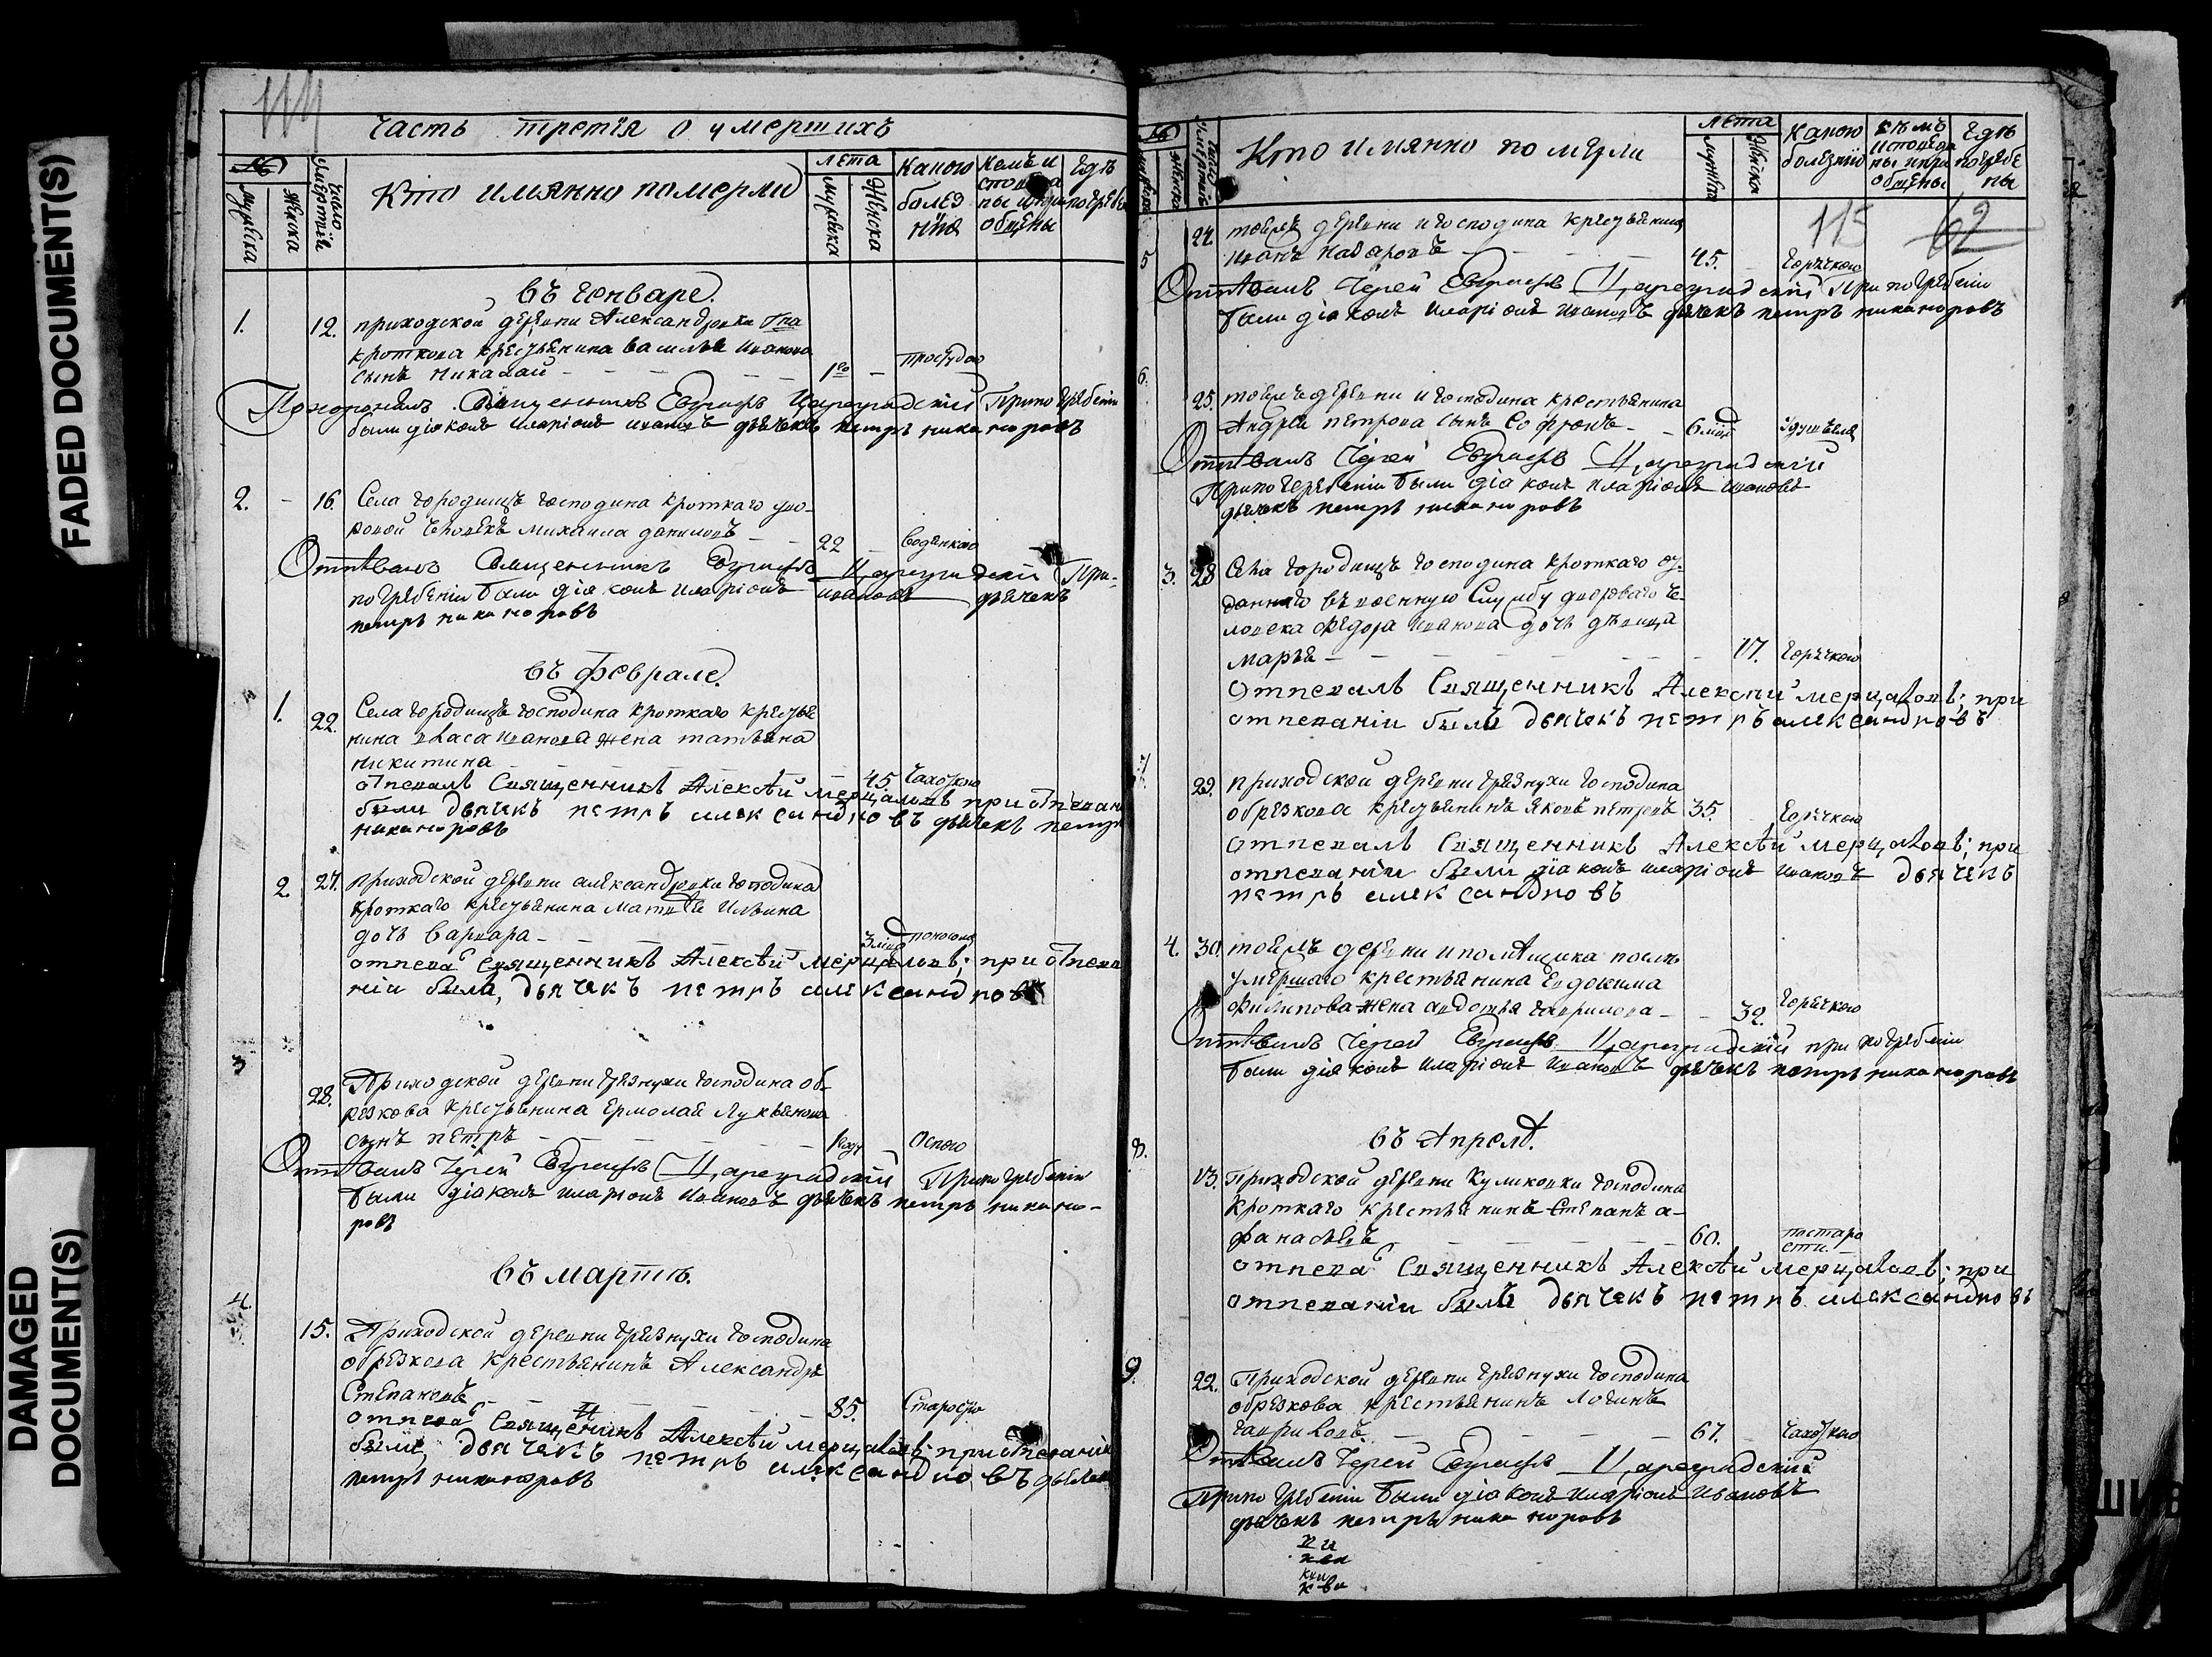 FADED DOCUMENT(S)
DAMAGED
DOCUMENT(S)
114
Часть третїя о умершихъ
№
мужеска
женска
число смертїя
Кто имянно померли
лета
мужеска
женска
Какою болезнїю
Кемъ исповеданы и приобщены
Гдѣ погребены
Въ Генваре.
1. 12. приходской деревни Александровки Гна
кроткова крестьянина василья иванова
сынъ николай 1го простудою
Похоронялъ Священникъ Евграфъ Цареградскїй При погребенїи
были дїаконъ иларїонъ ивановъ дьячекъ петръ никаноровъ
2. 16. Села городищъ господина кроткаго дво-
ровой человекъ михаила даниловъ 22 водянкою
Отпѣвалъ Священникъ Евграфъ Цареградскїй При-
погребенїи были дїаконъ иларїонъ ивановъ дьячекъ
петръ никаноровъ
Въ Феврале.
1. 22. Села городищъ господина кроткаго крестья
нина власа иванова жена татьяна
никитина 45 чахоткою
отпевалъ Священникъ Алексѣй мерцаловъ при отпеван
были дьячекъ петръ александровъ дьячекъ петръ
никаноровъ
2 27. приходской деревни александровки господина
кроткаго крестьянина матвѣя ильина
дочь варвара поносомъ
отпевалъ Священникъ Алексѣй мерцаловъ; при отпева
нїи были, дьячекъ петръ александровъ
3 28. Приходской деревни грязнухи господина об-
резкова крестьянина ермолая лукьянова
сынъ петръ 1 году оспою
Отпѣвалъ Їерей Евграфъ Цареградскїй При погребенїи
были дїаконъ иларїонъ ивановъ дьячекъ петръ никано-
ровъ
Въ мартѣ.
4. 15. Приходской деревни грязнухи господина
обрезкова крестьянинъ Александръ
Степановъ 85. Старостїю
отпевалъ Священникъ Алексѣй мерцаловъ; при отпеванїи
были, дьячекъ петръ александровъ дьячекъ
петръ никаноровъ
№
мужеска
женска
число смертїя
Кто имянно померли
лета
мужеска
женска
Какою болезнїю
Кѣмъ исповеданы и приобщены
Гдѣ погребены
115
62
5 24 тоеяже деревни и господина крестьянинъ
иванъ назаровъ 45. горячкою
Отпѣвалъ Їерей Евграфъ Цареградскїй При погребенїи
были дїаконъ иларїонъ ивановъ дьячекъ петръ никаноровъ
6. 25. тоежъ деревни и господина крестьянина
Андрея петрова сынъ Софронъ 6 удушьемъ
Отпѣвалъ Їерей Евграфъ Цареградскїй
При погребенїи были дїаконъ иларїонъ ивановъ
дьячекъ петръ никаноровъ
3. 28 Села городищъ господина кроткаго от-
даннаго въ военную Службу двороваго че-
ловека Федора иванова дочь девица
марья 17. горячкою
отпевалъ Священникъ Алексѣй мерцаловъ; при
отпеванїи былъ дьячекъ петръ александровъ
7 29. приходской деревни грязнухи господина
обрезкова крестьянинъ яковъ петровъ 35. горячкою
отпевалъ Священникъ Алексѣй мерцаловъ; при
отпеванїи были дїаконъ иларїонъ ивановъ дьячекъ
петръ александровъ
4. 30. тоежъ деревни и помѣщика послѣ
умершаго крестьянина Евдокима
филипова жена авдотья гаврилова 32. горячкою
Отпѣвалъ Їерей Евграфъ Цареградскїй при погребенїи
были дїаконъ иларїонъ ивановъ дьячекъ петръ никаноровъ
Въ Апрелѣ.
8. 13. Приходской деревни Куликовки господина
Кроткаго крестьянинъ Степанъ а-
фанасьевъ 60. по старости.
отпевалъ Священникъ Алексѣй мерцаловъ; при
отпеванїи былъ дьячекъ петръ александровъ
9. 22. Приходской деревни грязнухи господина
обрезкова крестьянинъ логинъ
гавриловъ 67. чахоткою
Отпѣвалъ Їерей Евграфъ Цареградскїй
При погребенїи были дїаконъ иларїонъ ивановъ
дьячекъ петръ никаноровъ